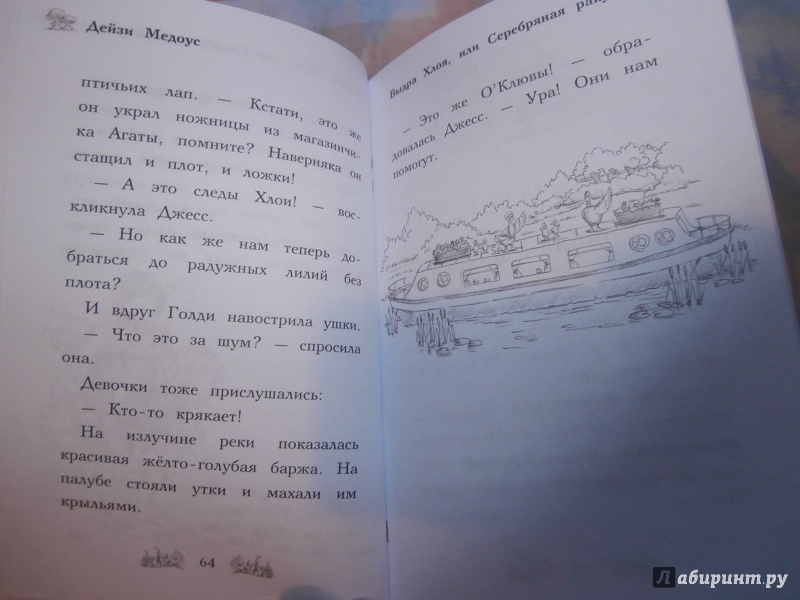 Дейзи Медоус
птичьих лап. — Кстати, это же
он украл ножницы из магазинчи-
ка Агаты, помните? Наверняка он
стащил и плот, и ложки!
— А это следы Хлои! — вос-
кликнула Джесс.
— Но как же нам теперь до-
браться до радужных лилий без
плота?
И вдруг Голди навострила ушки.
— Что это за шум? — спросила
она.
Девочки тоже прислушались:
— Кто-то крякает!
На излучине реки показалась
красивая жёлто-голубая баржа. На
палубе стояли утки и махали им
крыльями.
64
Выдра Хлоя, или Серебряная
— Это же О'Клювы! — обра-
довалась Джесс. — Ура! Они нам
помогут.
Лабиринт.ру